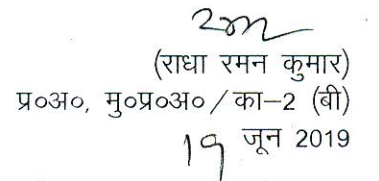 (राधा रमन कुमार)
प्र०अ०, मु०प्र०अ० / का–2 (बी)
19 जून 2019